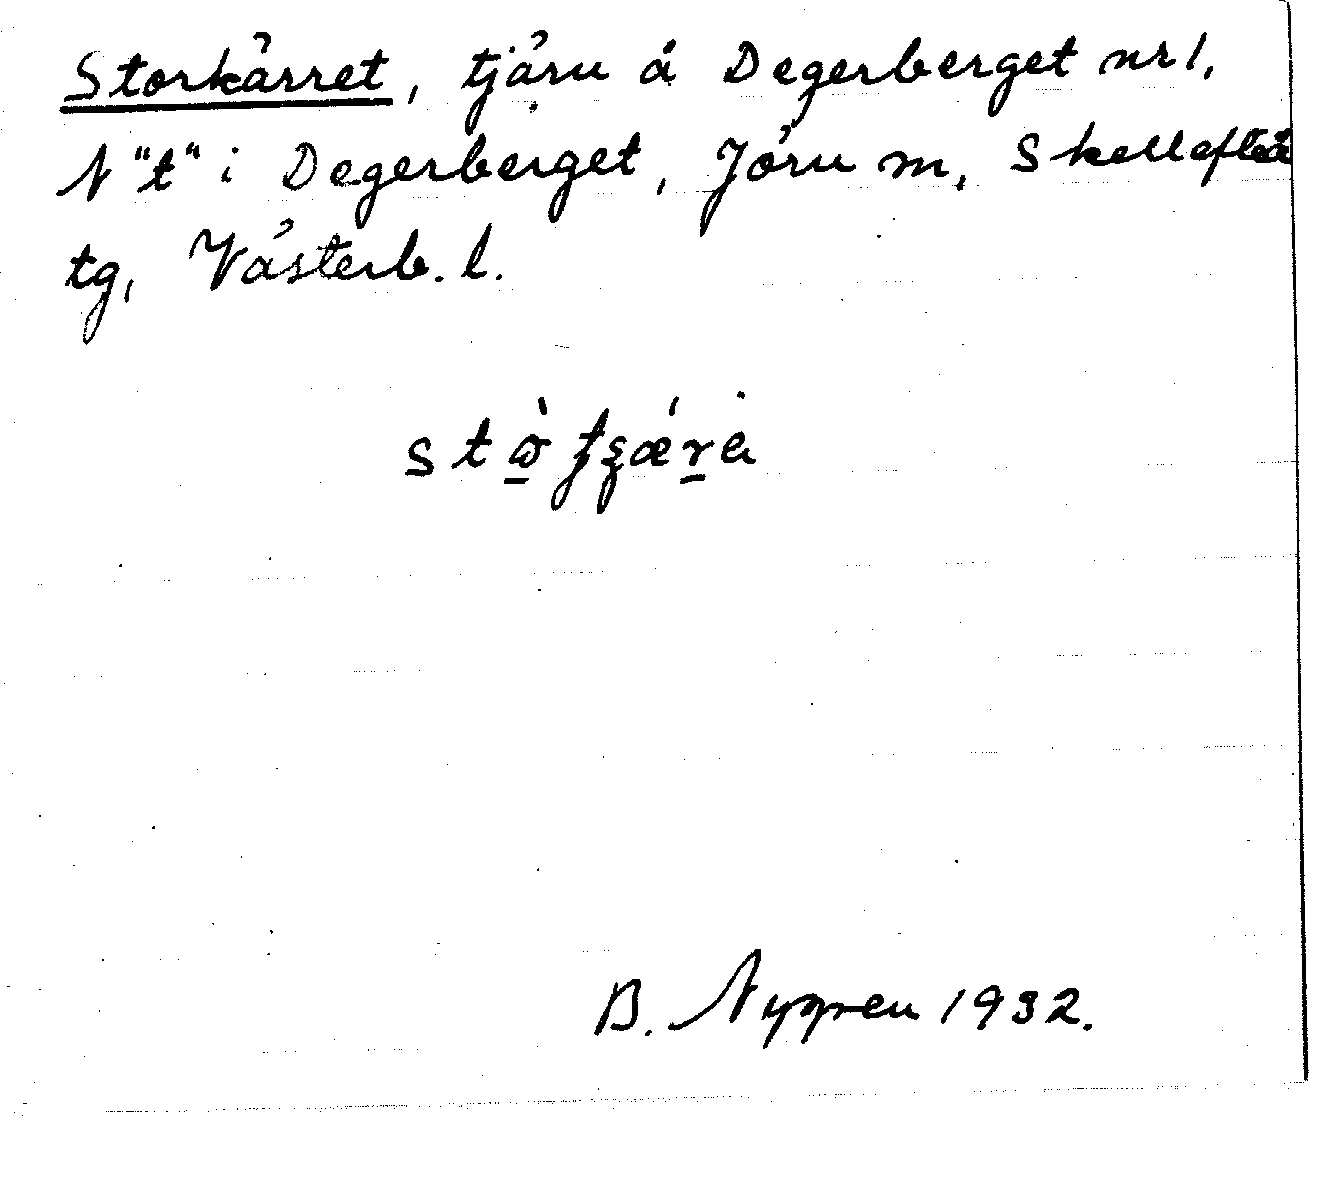 Storkärret, tjärn å Degerberget nr 1,
N "t" i Degerberget, Jörn m, Skellefteå
tg, Västerb. l.
B. Nygren 1932.